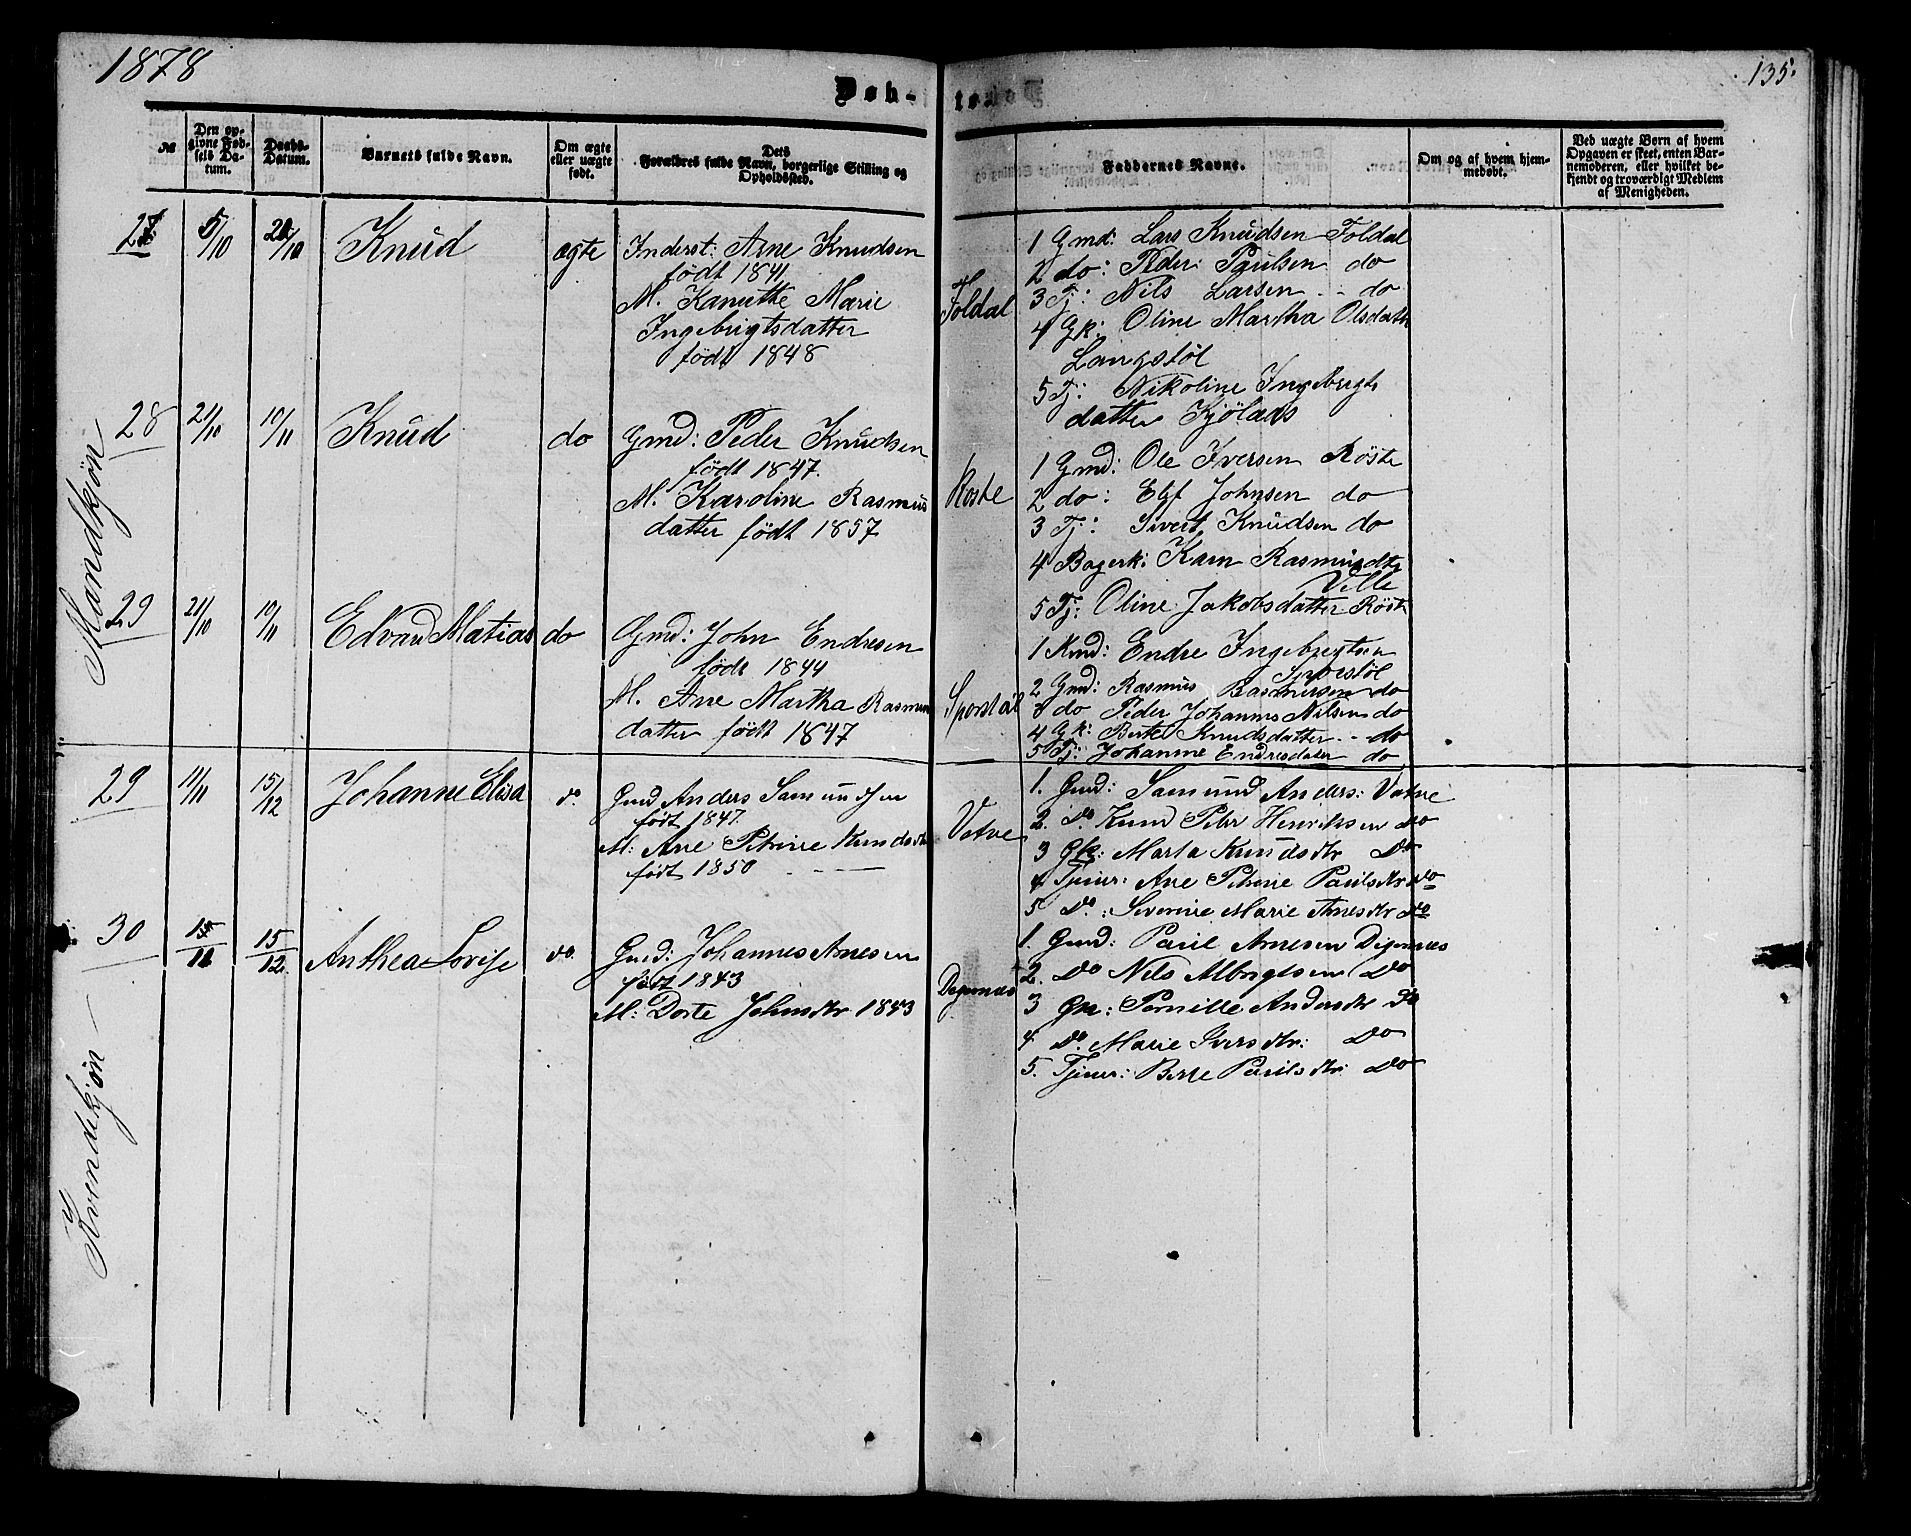 1878
135.
Døbte
№
Den opgivne Fødsels Datum.
Daabs-Datum.
Barnets fulde Navn.
Om ægte eller uægte født.
Dets Forældres fulde Navn, borgerlige Stilling og Opholdssted.
Faddernes Navne.
Om og af hvem hjemmedøbt.
Ved uægte Børn af hvem Opgaven er skeet, enten Barnemoderen, eller hvilket bekjendt og troværdigt Medlem af Menigheden.
Mandkjøn
27 5/10 /10 Knud ægte
Inderst: Arne Knudsen
født 1841
M. Kanutte Marie
Ingebrigtsdatter
født 1848
Foldal
1 Gmd: Lars Knudsen Foldal
2 do: Peder Paulsen do
3 Tj: Nils Larsen - - do
4 Gk: Oline Martha Olsdattr
Langstøl
5 Tj: Nikoline Ingebrigts
datter Kjölaas
28 21/10 10/11 Knud do
Gmd: Peder Knudsen
født 1847.
M. Karoline Rasmus
datter født 1857
Røste
1 Gmd: Ole Iversen Röste
2 do: Elef Johnsen do
3 Tj: Sivert Knudsen do
4 Bagerk: Karn Rasmusdtr
Velle
5 Tj: Oline Jakobsdatter Röste
29 21/10 10/11 Edvard Matias do
Gmd: John Endresen
født 1844
M. Ane Martha Rasmus
datter født 1847
Sporstøl
1 Kmd: Endre Ingebregtsen
Sporstøl
2 Gmd: Rasmus Rasmusen do
3 do Peder Johannes Nilsen do
4 Gk: Berte Knudsdatter - - do
5 Tj: Johanne Endresdater do
Kvendekjøn
29 11/11 15/12 Johanne Elisa do.
Gmd Anders Samundsen
født 1847.
M: Ane Petrine Knudsdtr
født 1850 - - -
Vatne
1. Gmd: Samund Anders: Vatne
2. Do. Knud Peter Henriksen do
3 Gk: Marta Knudsdtr Do
4 Tjener: Ane Petrine Paulsdtr do
5 Do.: Severine Marie Arnesdtr do
30 /11 15/12. Anthea Lovise do.
Gmd: Johannes Arnesen
født 1843
M: Dorte Johnsdtr 1843
Digernæs
1. Gmd: Paul Arnesen Digernæs
2. Do Nils Albregtsen Do
3 Gk: Pernille Andersdtr do
4 Do. Marie Iversdtr: Do
5. Tjener: Berte Paulsdtr: Do